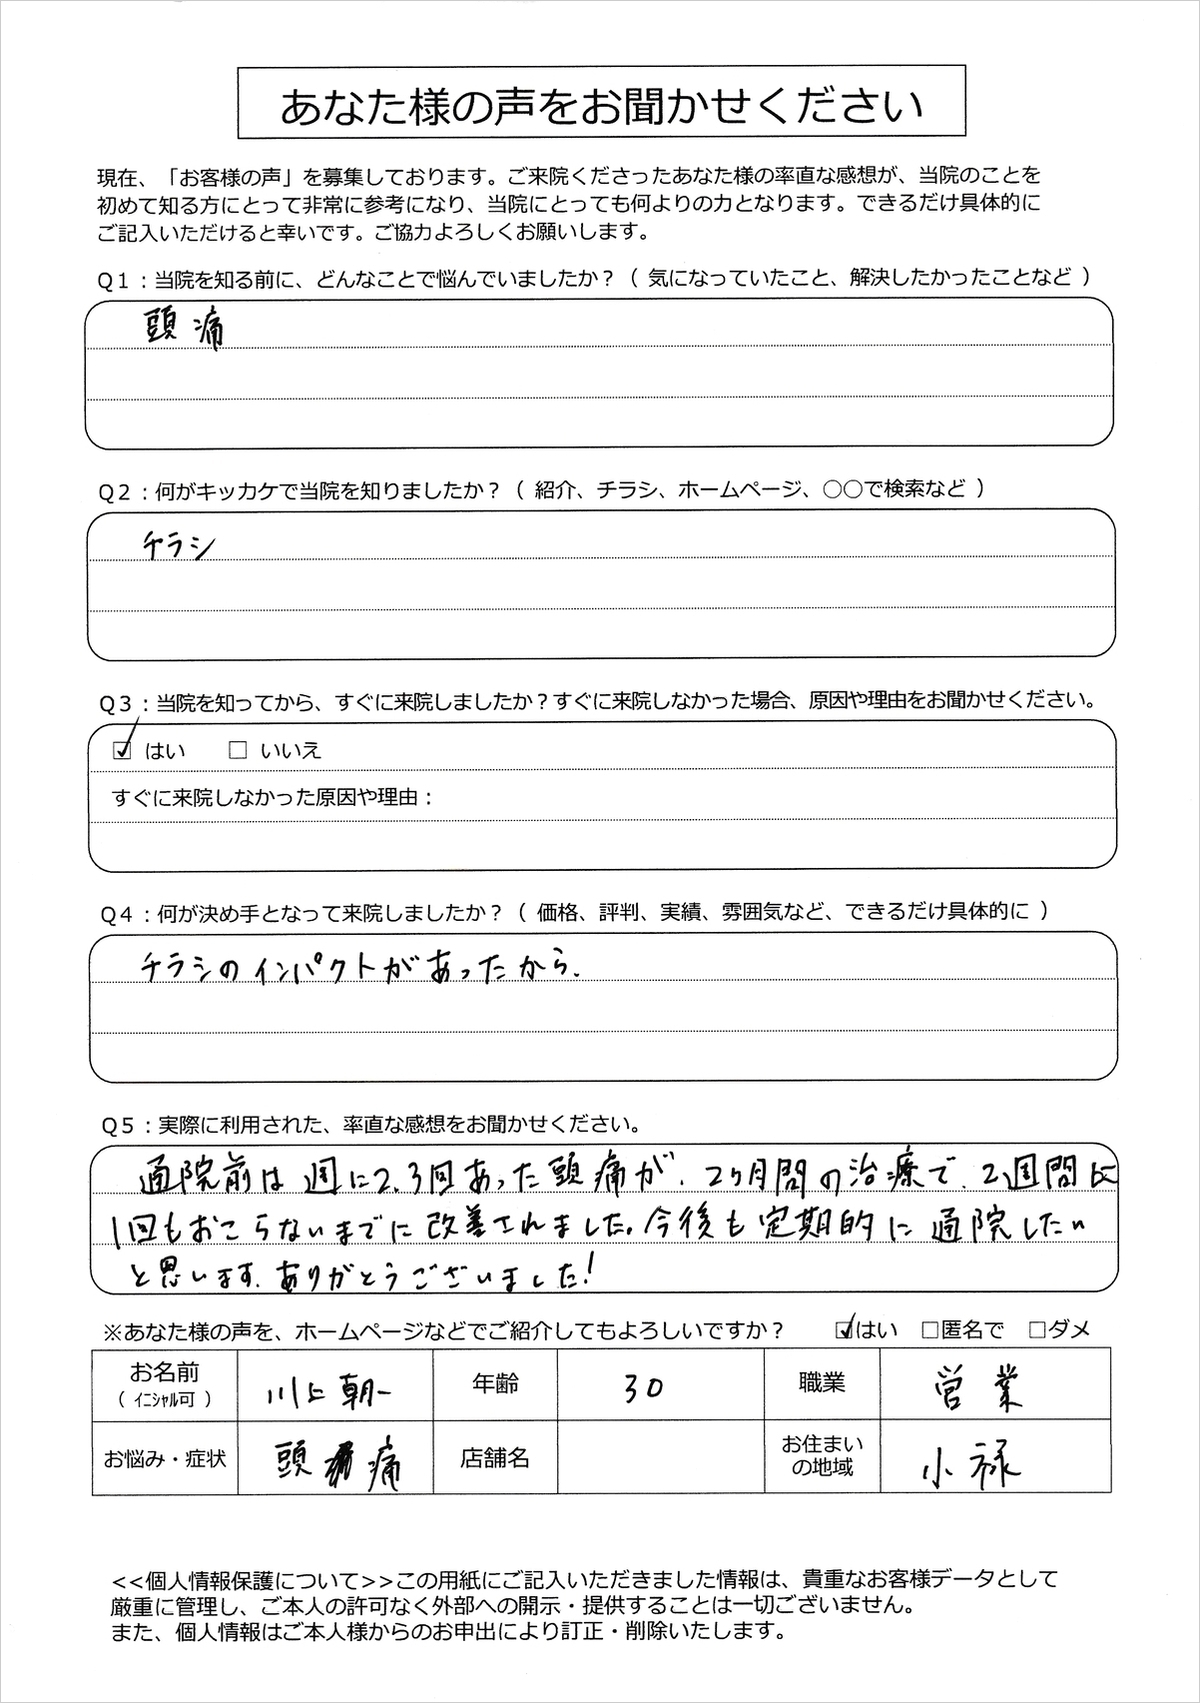 あなた様の声をお聞かせください
現在、「お客様の声」を募集しております。ご来院くださったあなた様の率直な感想が、当院のことを
初めて知る方にとって非常に参考になり、当院にとっても何よりの力となります。できるだけ具体的に
ご記入いただけると幸いです。ご協力よろしくお願いします。
Q1：当院を知る前に、どんなことで悩んでいましたか？（ 気になっていたこと、解決したかったことなど ）
頭痛
Q2：何がキッカケで当院を知りましたか？（ 紹介、チラシ、ホームページ、〇〇で検索など ）
チラシ
Q3：当院を知ってから、すぐに来院しましたか？すぐに来院しなかった場合、原因や理由をお聞かせください。
☑ はい　□ いいえ
すぐに来院しなかった原因や理由：
Q4：何が決め手となって来院しましたか？（ 価格、評判、実績、雰囲気など、できるだけ具体的に ）
チラシのインパクトがあったから.
Q5：実際に利用された、率直な感想をお聞かせください。
通院前は週に2.3回あった頭痛が、2ヶ月間の治療で、2週間に
1回もおこらないまでに改善されました。今後も定期的に通院したい
と思います。ありがとうございました!
※あなた様の声を、ホームページなどでご紹介してもよろしいですか？　☑はい　□匿名で　□ダメ
お名前（ イニシャル可 ）　川上 朝一　年齢　30　職業　営業
お悩み・症状　頭痛　店舗名　お住まいの地域　小禄
<<個人情報保護について>>この用紙にご記入いただきました情報は、貴重なお客様データとして
厳重に管理し、ご本人の許可なく外部への開示・提供することは一切ございません。
また、個人情報はご本人様からのお申出により訂正・削除いたします。